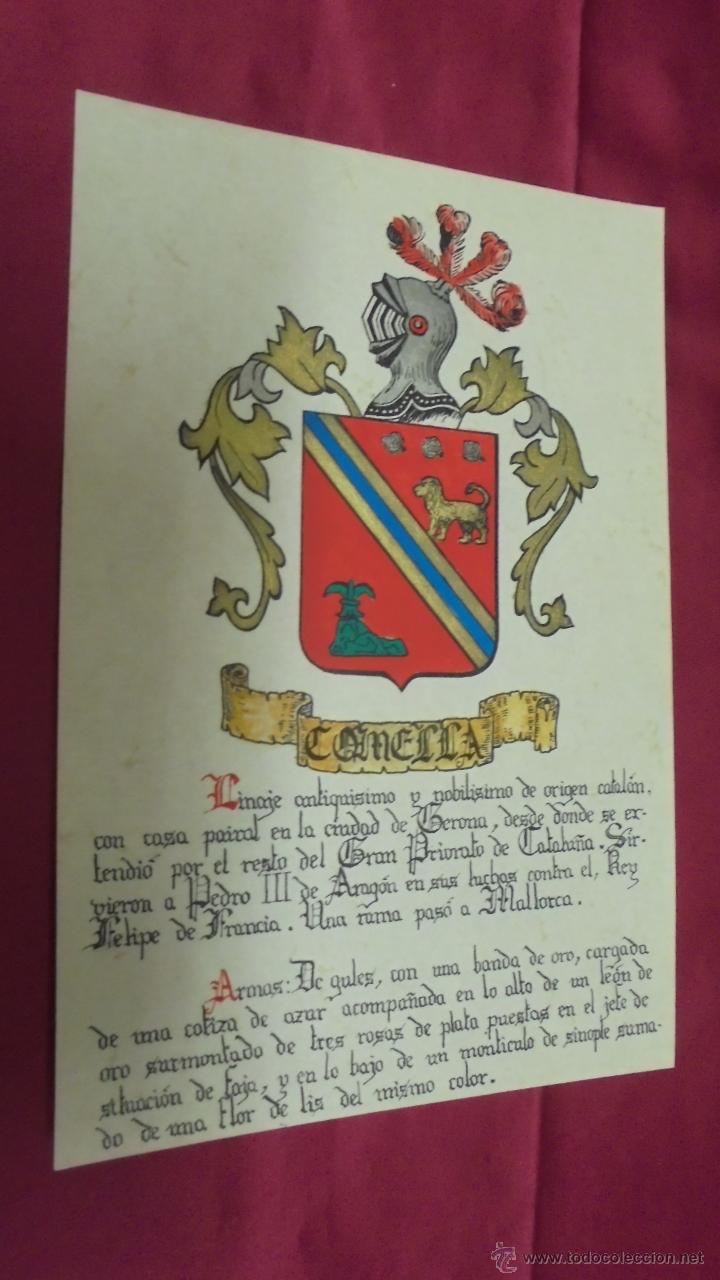 COMELLA
Linaje antiquisimo y nobilisimo de origen catalán,
con casa pairal en la ciudad de Gerona, desde donde se ex-
tendió por el resto del Gran Priorato de Cataluña. Sir-
vieron a Pedro III de Aragón en sus luchas contra el, Rey
Felipe de Francia. Una rama pasó a Mallorca.
Armas: De gules, con una banda de oro, cargada
de una cotiza de azur acompañada en lo alto de un león de
oro surmontado de tres rosas de plata puestas en el jefe de
situación de faja, y en lo bajo de un monticulo de sinople suma-
do de una flor de lis del mismo color.
www.todocoleccion.net